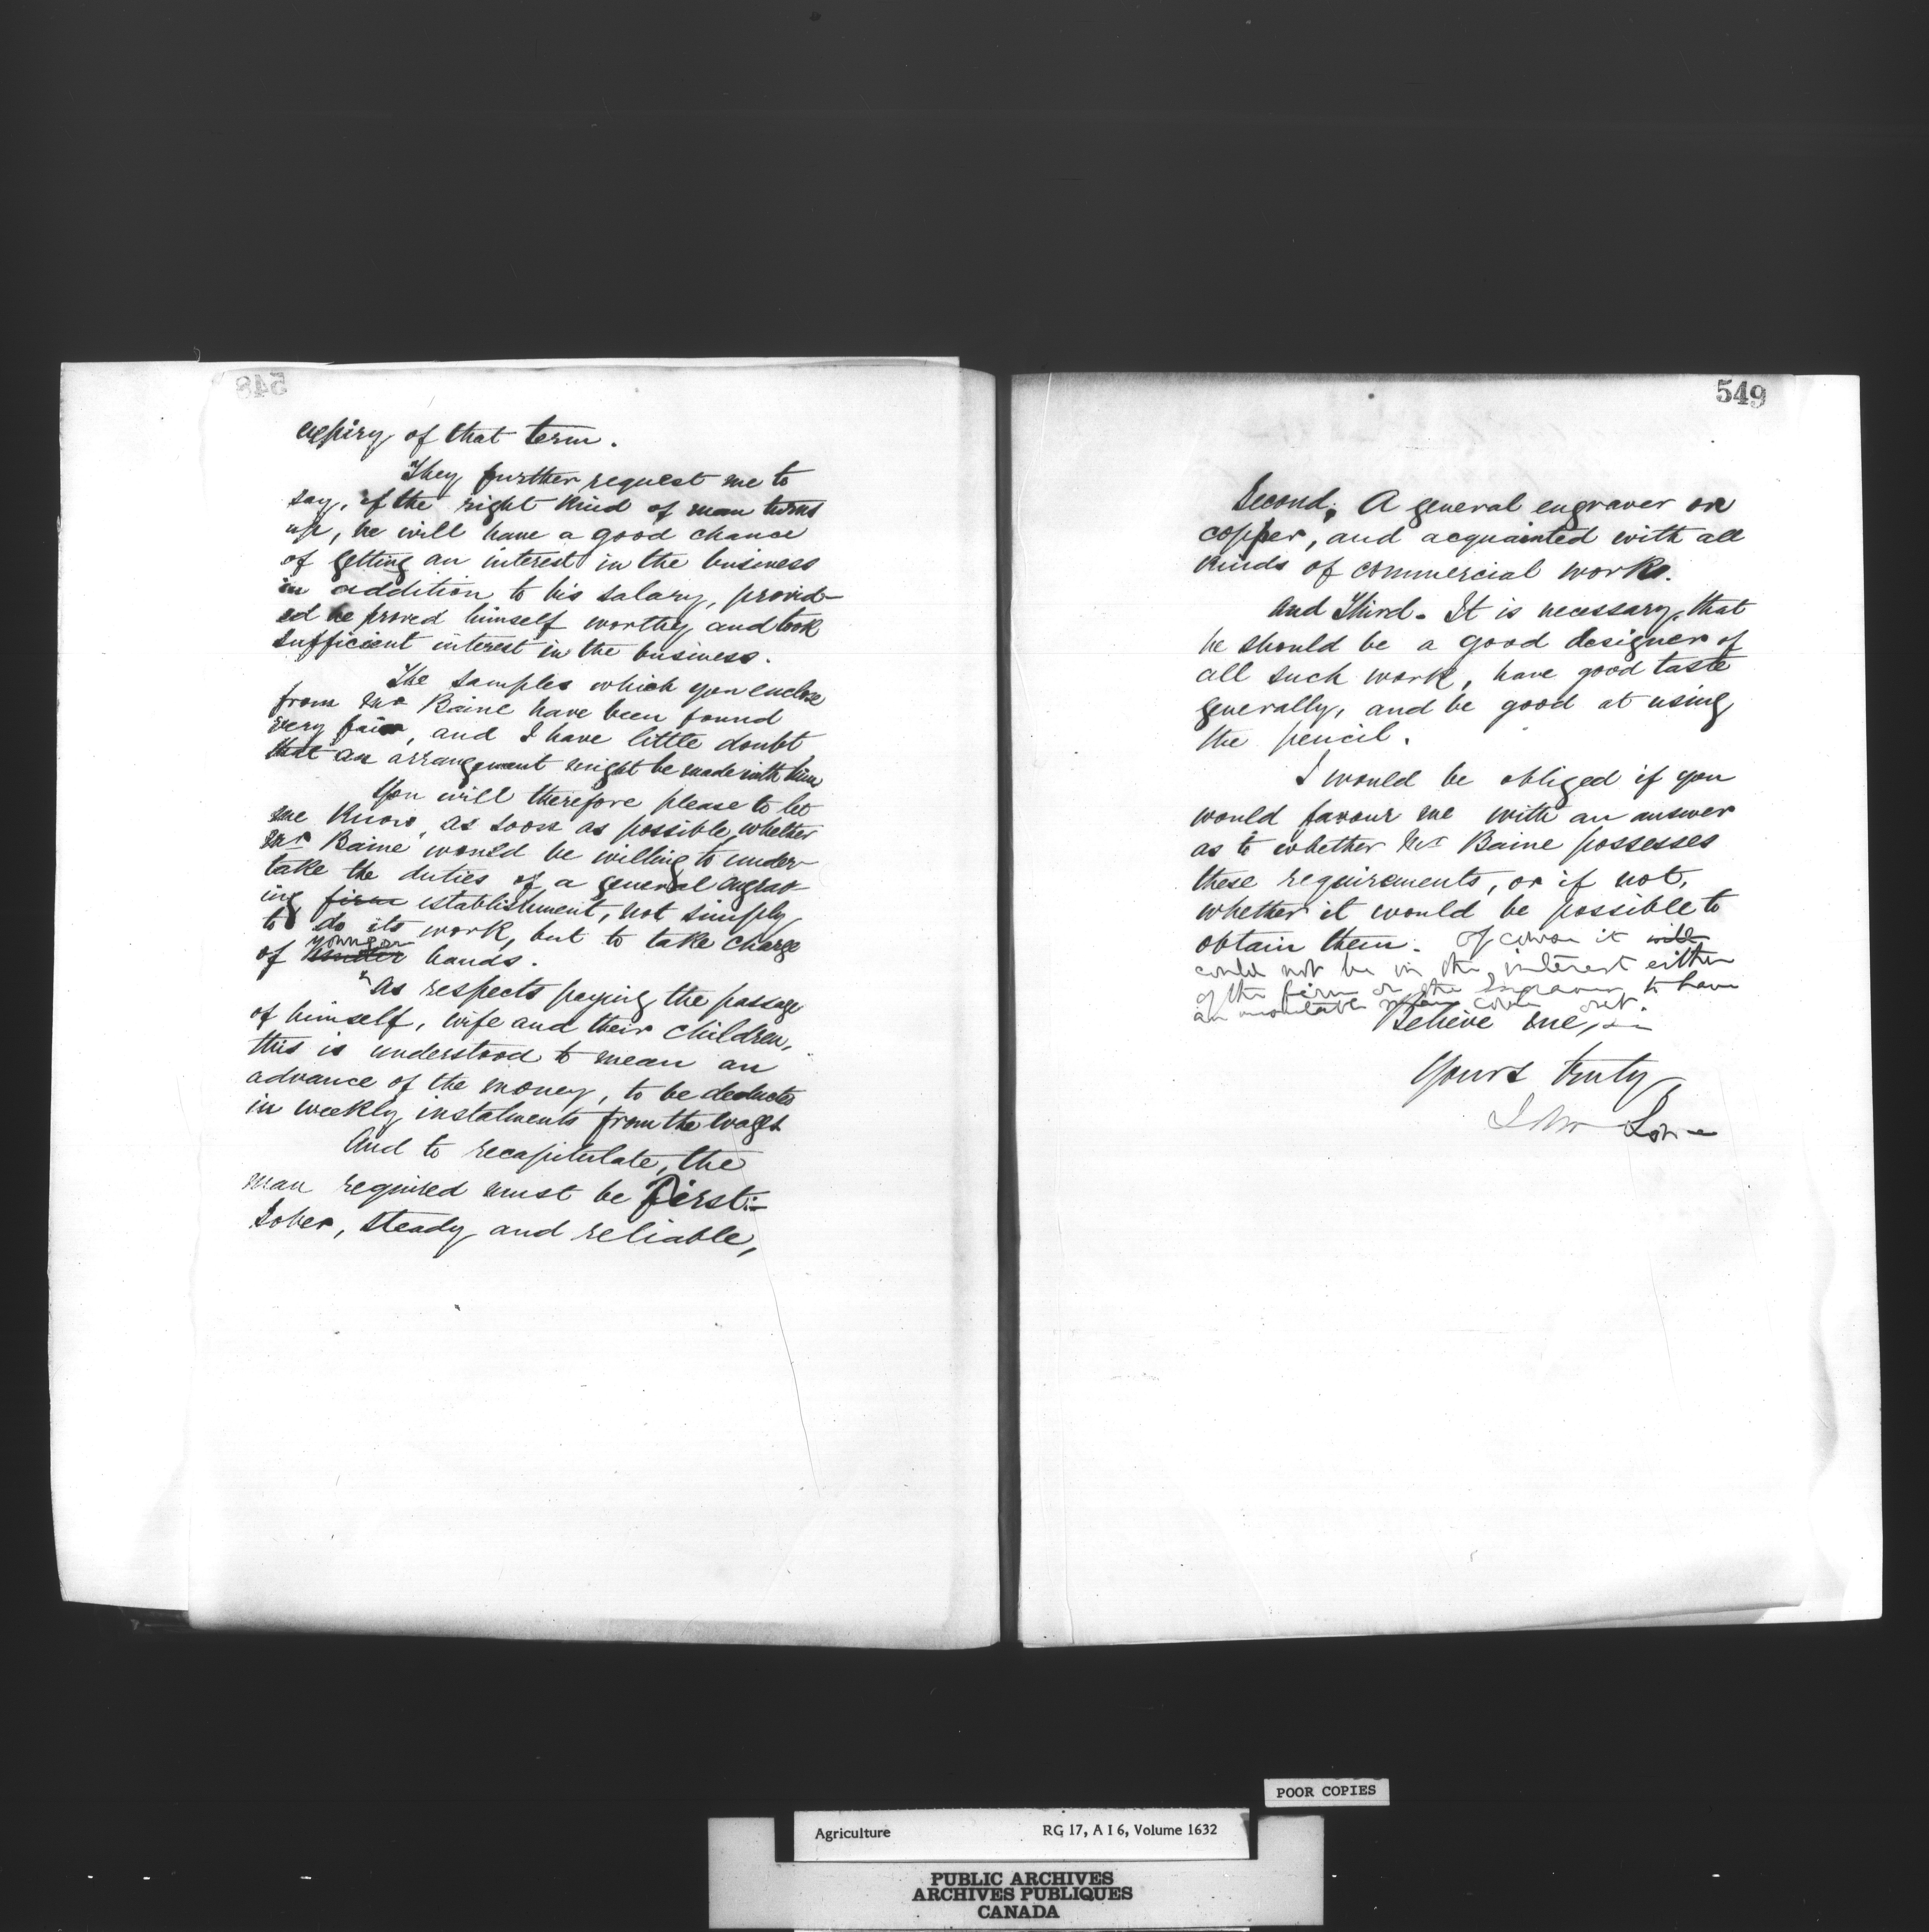 548
expiry of that term.
They further request me to
say, if the right kind of man turns
up, he will have a good chance
of getting an interest in the business
in addition to his salary, provid-
ed he proved himself worthy and took
sufficient interest in the business.
The samples which you enclose
from Mr Baine have been found
very fair, and I have little doubt
that an arrangement might be made with him
You will therefore please to let
me know, as soon as possible, whether
Mr Baine would be willing to under-
take the duties of a general engrav-
ing firm establishment, not simply
to do its work, but to take charge
younger
of under hands.
As respects paying the passage
of himself, wife and their children,
this is understood to mean an
advance of the money, to be deducted
in weekly instalments from the wages
And to recapitulate, the
man required must be first:-
Sober, steady and reliable,
549
Second; A general engraver on
copper, and acquainted with all
kinds of commercial work.
And Third. It is necessary that
he should be a good designer of
all such work, have good taste
generally, and be good at using
the pencil.
I would be obliged if you
would favour me with an answer
as to whether Mr Baine possesses
these requirements, or if not,
whether it would be possible to
obtain them. Of course it will
could not be in the interest either
of the firm or the Engraver to have
an unsuitable man come out.
Believe me,
Yours truly
Lowe
POOR COPIES
Agriculture RG 17, A I 6, Volume 1632
PUBLIC ARCHIVES
ARCHIVES PUBLIQUES
CANADA